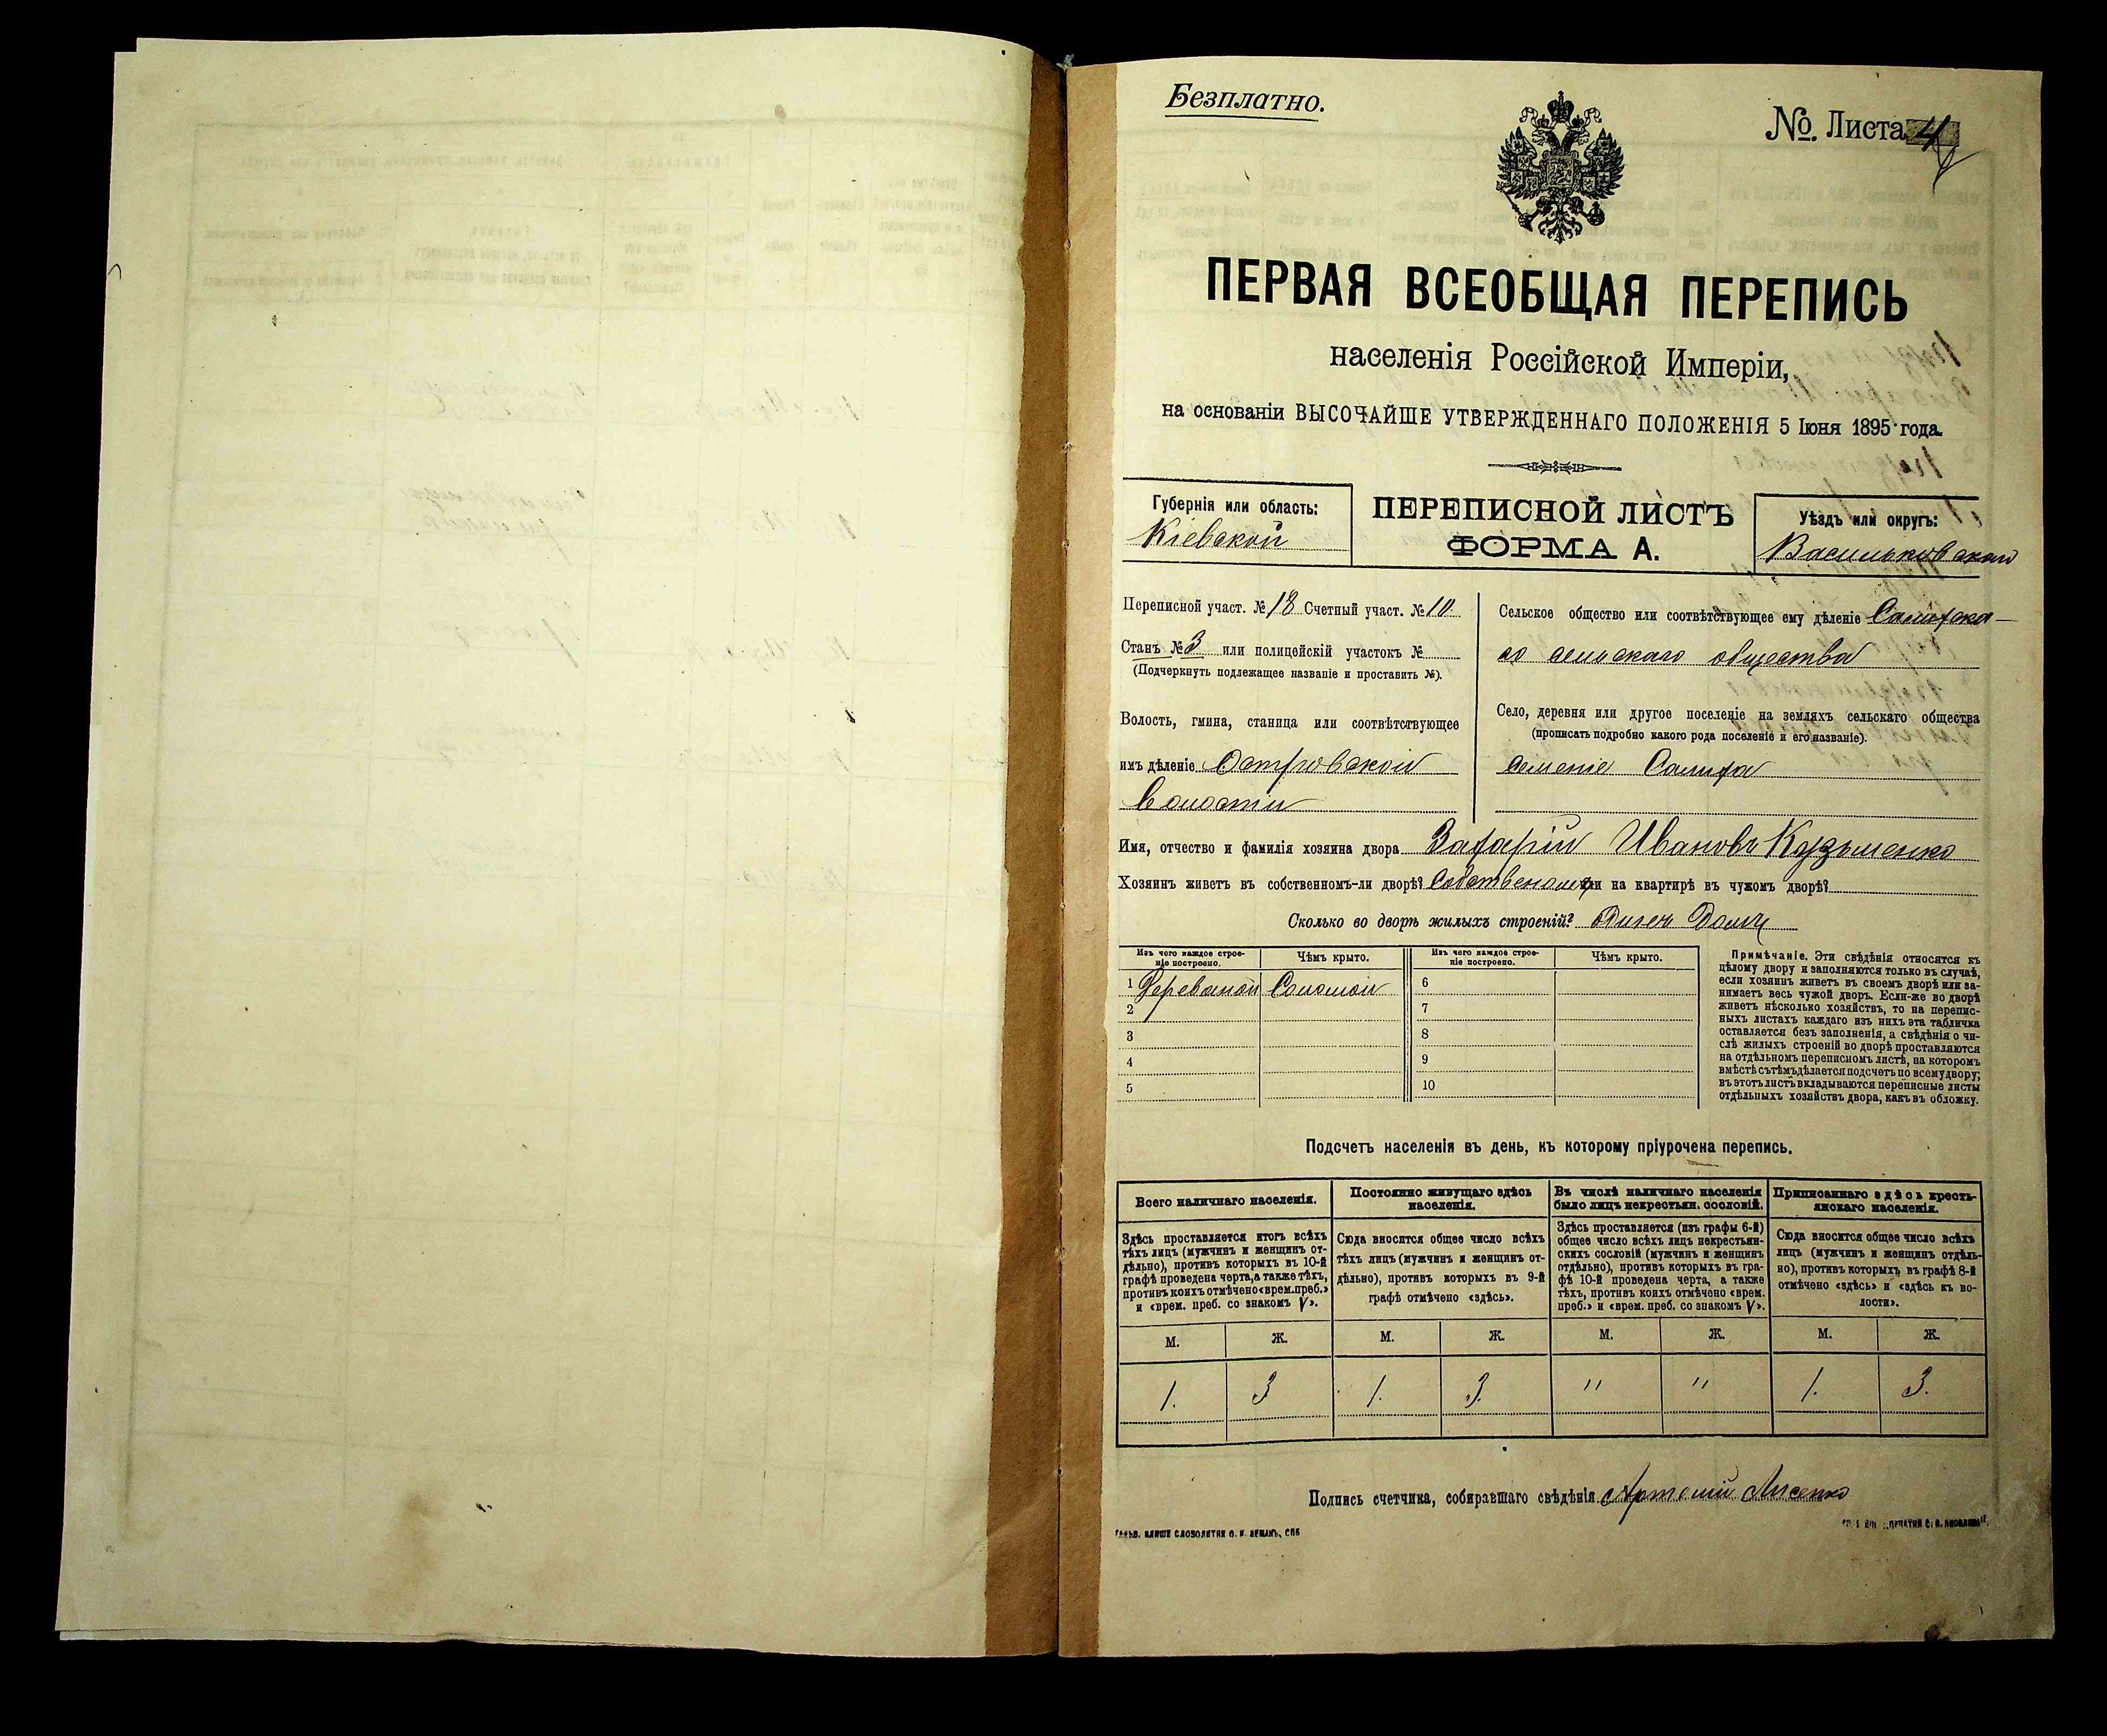 Безплатно.
№. Листа 4
ПЕРВАЯ ВСЕОБЩАЯ ПЕРЕПИСЬ
населенія Россійской Имперіи,
на основаніи ВЫСОЧАЙШЕ УТВЕРЖДЕННАГО ПОЛОЖЕНІЯ 5 Іюня 1895 года.
Губернія или область:
Кіевской
ПЕРЕПИСНОЙ ЛИСТЪ
ФОРМА А.
Уѣздъ или округъ:
Васильковскаго
Переписной участ. № 18 Счетный участ. № 10
Станъ № 3 или полицейскій участокъ №
(Подчеркнуть подлежащее названіе и проставить №).
Волость, гмина, станица или соотвѣтствующее
имъ дѣленіе Островской
Волости
Сельское общество или соотвѣтствующее ему дѣленіе
го сельскаго общества
Село, деревня или другое поселеніе на земляхъ сельскаго общества
(прописать подробно какого рода поселеніе и его названіе).
Имя, отчество и фамилія хозяина двора Захарій Ивановъ Кузьменко
Хозяинъ живетъ въ собственномъ-ли дворѣ? или на квартирѣ въ чужомъ дворѣ?
Сколько во дворѣ жилыхъ строеній? Одинъ Домъ
Изъ чего каждое строе-
ніе построено.
Чѣмъ крыто.
Изъ чего каждое строе-
ніе построено.
Чѣмъ крыто.
1 Деревяной Соломой 6
2 7
3 8
4 9
5 10
Примѣчаніе. Эти свѣдѣнія относятся къ
цѣлому двору и заполняются только въ случаѣ,
если хозяинъ живетъ въ своемъ дворѣ или за-
нимаетъ весь чужой дворъ. Если-же во дворѣ
живетъ нѣсколько хозяйствъ, то на перепис-
ныхъ листахъ каждаго изъ нихъ эта табличка
оставляется безъ заполненія, а свѣдѣнія о чи-
слѣ жилыхъ строеній во дворѣ проставляются
на отдѣльномъ переписномъ листѣ, на которомъ
вмѣстѣ съ тѣмъ дѣлается подсчетъ по всему двору;
въ этотъ листъ вкладываются переписные листы
отдѣльныхъ хозяйствъ двора, какъ въ обложку.
Подсчетъ населенія въ день, къ которому пріурочена перепись.
Всего наличнаго населенія.
Здѣсь проставляется итогъ всѣхъ
тѣхъ лицъ (мужчинъ и женщинъ от-
дѣльно), противъ которыхъ въ 10-й
графѣ проведена черта, а также тѣхъ,
противъ коихъ отмѣчено «врем. преб.»
и «врем. преб. со знакомъ V».
Постоянно живущаго здѣсь
населенія.
Сюда вносится общее число всѣхъ
тѣхъ лицъ (мужчинъ и женщинъ от-
дѣльно), противъ которыхъ въ 9-й
графѣ отмѣчено «здѣсь».
Въ числѣ наличнаго населенія
было лицъ некрестьян. сословій.
Здѣсь проставляется (изъ графы 6-й)
общее число всѣхъ лицъ некрестьян-
скихъ сословій (мужчинъ и женщинъ
отдѣльно), противъ которыхъ въ гра-
фѣ 10-й проведена черта, а также
тѣхъ, противъ коихъ отмѣчено «врем.
преб.» и «врем. преб. со знакомъ V».
Приписаннаго здѣсь кресть-
янскаго населенія.
Сюда вносится общее число всѣхъ
лицъ (мужчинъ и женщинъ отдѣль-
но), противъ которыхъ въ графѣ 8-й
отмѣчено «здѣсь» и «здѣсь къ во-
лости».
М. Ж. М. Ж. М. Ж. М. Ж.
1. 3 1. 3. " " 1. 3.
Подпись счетчика, собиравшаго свѣдѣнія Артемій Лисенко